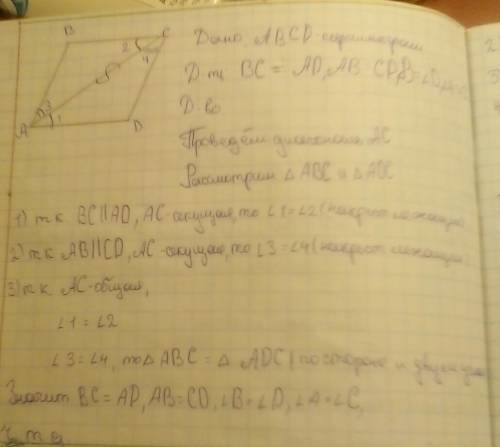 B C
2 4
3 1
A D
Дано: ABCD-параллелограмм
Д-ть BC = AD, AB CD, ∠B=∠D,
Д-во
Проведём диагональ AC
Рассмотрим △ ABC и △ ADC
1) т.к BC||AD, AC-секущая, то ∠1=∠2 (накрест лежащие)
2) т.к AB||CD, AC-секущая, то ∠3=∠4 (накрест лежащие)
3) т.к AC-общая,
∠1=∠2
∠3=∠4, то △ ABC = △ ADC (по стороне и двум
Значит BC=AD, AB=CD, ∠B=∠D, ∠A=∠C,
ч.т.д